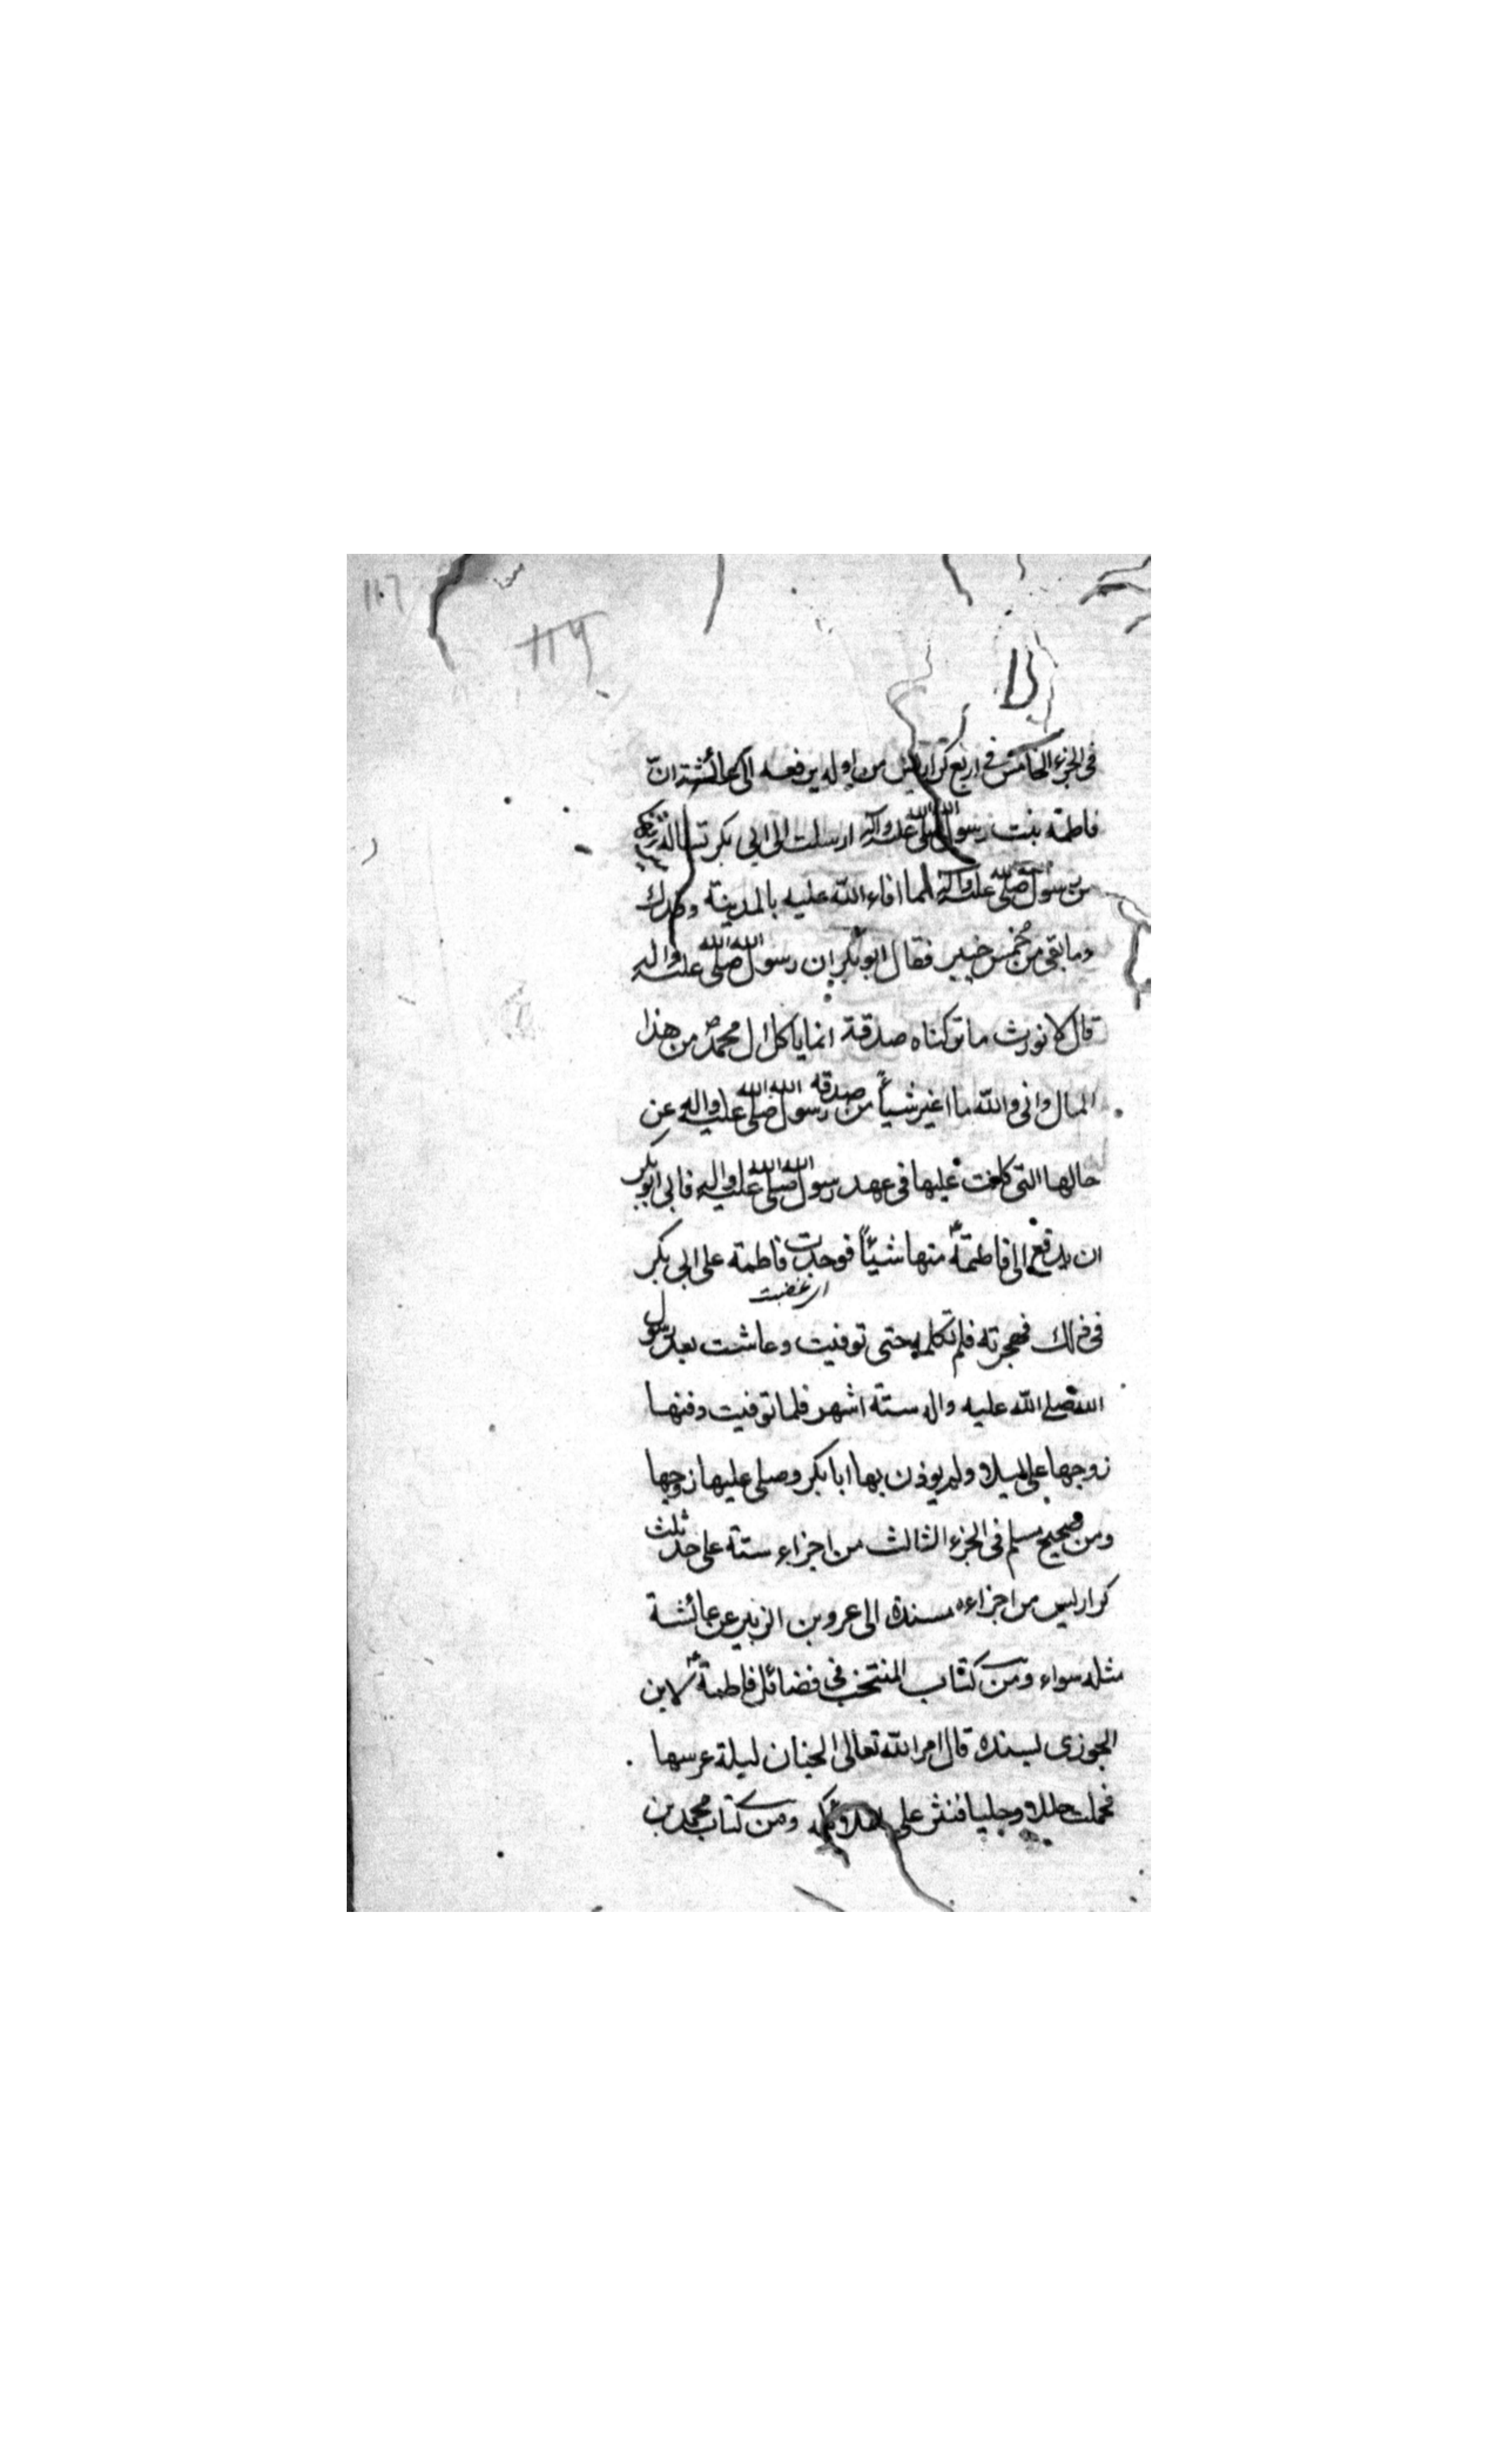 في الجزء الخامس في اربع كراريس من اوله يرفعه الى عائشة انّ
فاطمة بنت رسول الله صلى الله عليه واله ارسلت الى ابي بكر تساله
من رسول الله صلى الله عليه واله مما افاء الله عليه بالمدينة وفدك
وما بقى من خمس خيبر فقال ابو بكر ان رسول الله صلى الله عليه واله
قال لا نورث ما تركناه صدقة انما ياكل ال محمد من هذا
المال وانى والله ما اغير شيأً من صدقه رسول الله صلى الله عليه واله عن
حالها التى كانت عليها فى عهد رسول الله صلى الله عليه واله فابى ابو بكر
ان يدفع الى فاطمة منها شيئاً فوجدت فاطمة على ابى بكر
اى غضبت
فى ذلك فهجرته فلم تكلمه حتى توفيت وعاشت بعد رسول
الله صلى الله عليه واله ستة اشهر فلما توفيت دفنها
زوجها على ليلا ولم يوذن بها ابا بكر وصلى عليها زوجها
ومن صحيح مسلم فى الجزء الثالث من اجزاء ستة على حد ثلث
كراريس من اجزاءه مسندة الى عروبن الزبير عن عائشة
مثله سواء ومن كتاب المنتخب فى فضائل فاطمة لابن
الجوزى بسنده قال امر الله تعالى الجنان ليلة عرسها
فحملت حللا وحليا فنثر على ومن كتاب محمد بن